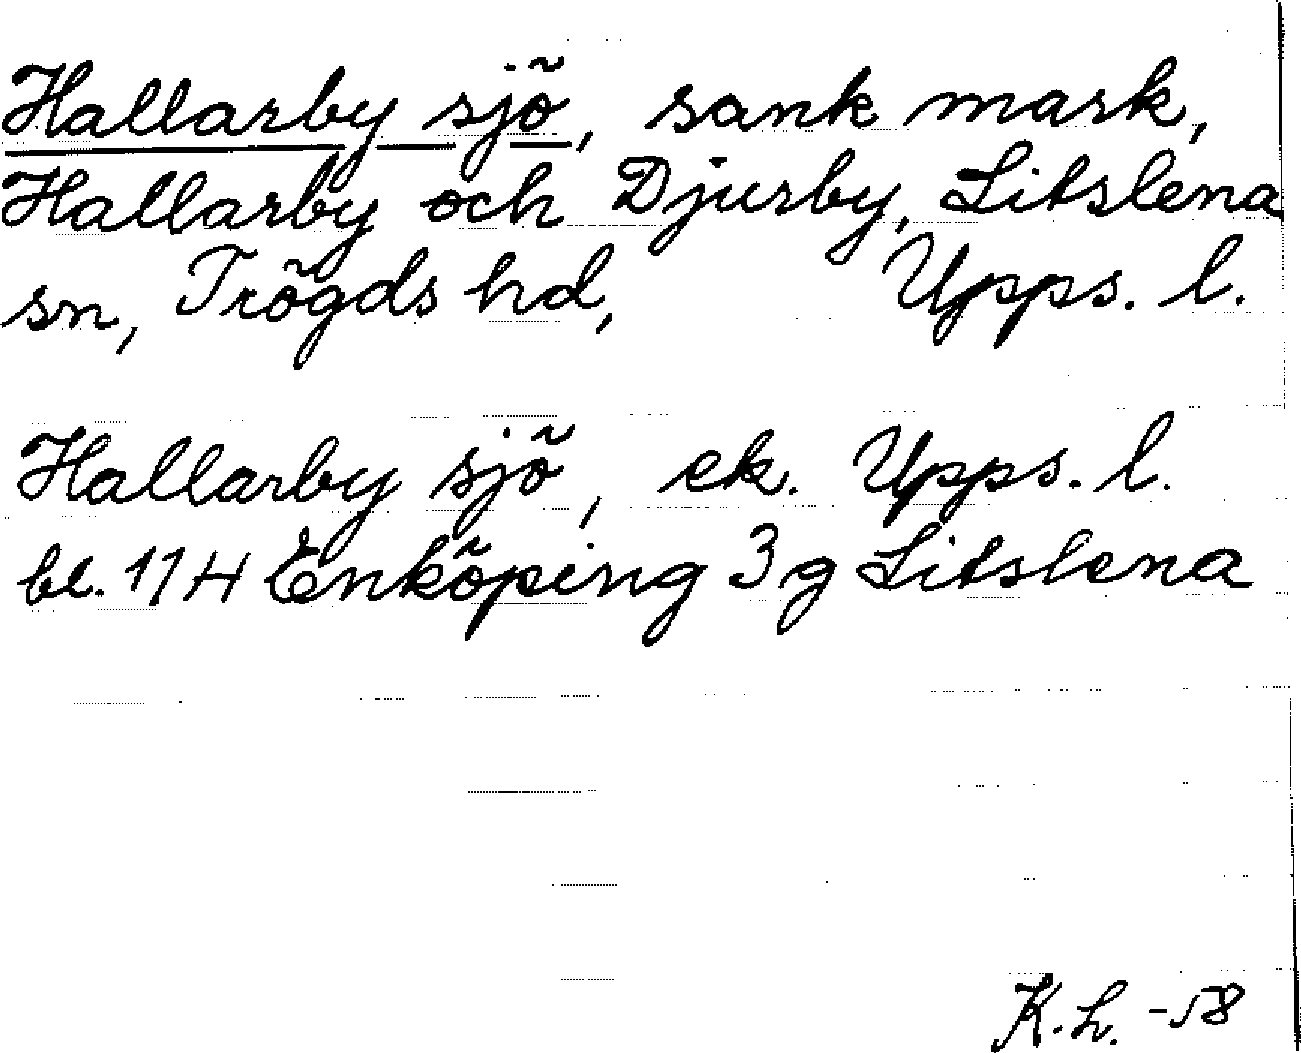 Hallarby sjö, sank mark,
Hallarby och Djurby, Litslena
sn, Trögds hd, Upps. l.
Hallarby sjö, ek. Upps. l.
bl. 114 Enköping 3 g Litslena
K.h. -58